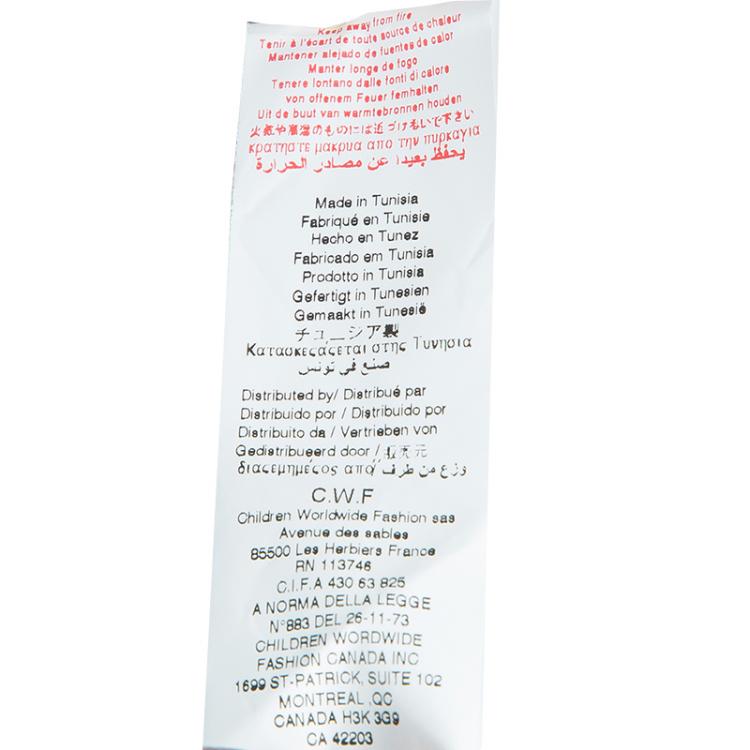 Keep away from fire
Tenir à l'écart de toute source de chaleur
Mantener alejado de fuentes de calor
Manter longe de fogo
Tenere lontano dalle fonti di calore
von offenem Feuer fernhalten
Uit de buut van warmtebronnen houden
火気や高温のものには近づけないで下さい
κρατηστε μακρυα απο την πυρκαγια
يحفظ بعيدا عن مصادر الحرارة
Made in Tunisia
Fabriqué en Tunisie
Hecho en Tunez
Fabricado em Tunisia
Prodotto in Tunisia
Gefertigt in Tunesien
Gemaakt in Tunesië
チュニジア製
Κατασκεςάςεται στης Τυνησια
صنع في تونس
Distributed by/ Distribué par
Distribuido por / Distribuido por
Distribuito da / Vertrieben von
Gedistribueerd door / 販売元
διαςεμημεςος από/ وزع من طرف
C.W.F
Children Worldwide Fashion sas
Avenue des sables
85500 Les Herbiers France
RN 113746
C.I.F.A 430 63 825
A NORMA DELLA LEGGE
N°883 DEL 26-11-73
CHILDREN WORDWIDE
FASHION CANADA INC
1699 ST-PATRICK, SUITE 102
MONTREAL ,QC
CANADA H3K 3G9
CA 42203